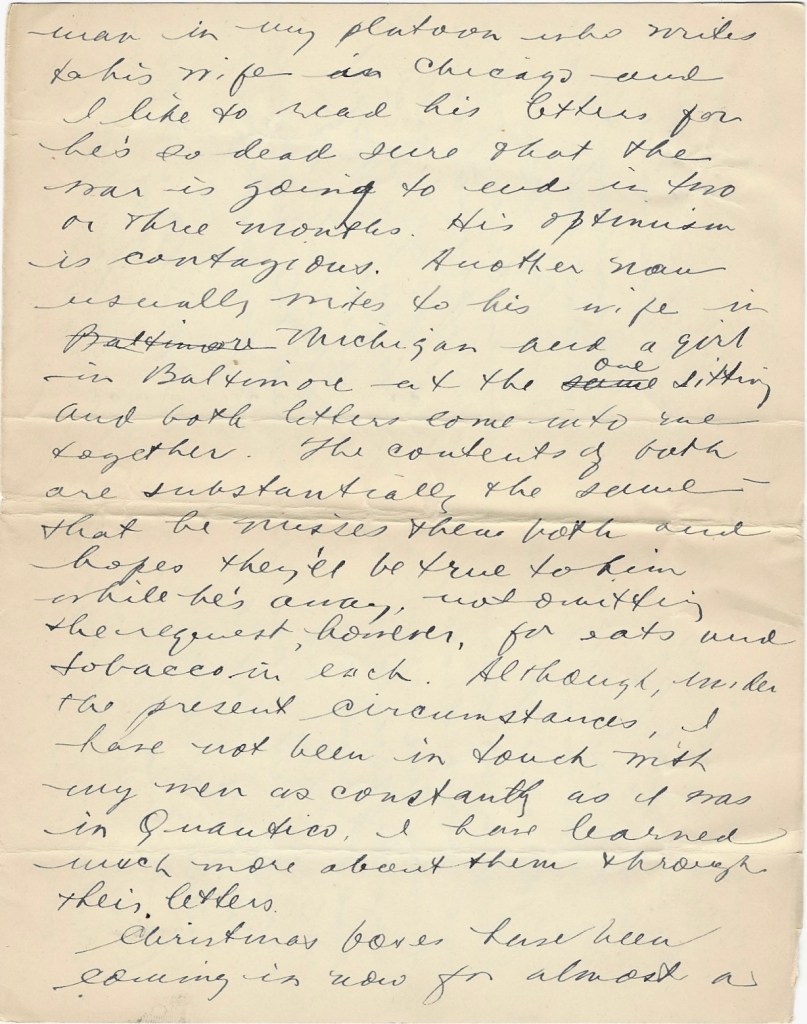 man in my platoon who writes
to his wife in Chicago and
I like to read his letters for
he's so dead sure that the
war is going to end in two
or three months. His optimism
is contagious. Another man
usually writes to his wife in
Baltimore Michigan and a girl
in Baltimore at the same one sitting
and both letters come into me
together. The contents of both
are substantially the same –
that he misses them both and
hopes they'll be true to him
while he's away, not omitting
the request, however, for eats and
tobacco in each. Although, under
the present circumstances, I
have not been in touch with
my men as constantly as I was
in Quantico, I have learned
much more about them through
their letters.
Christmas boxes have been
coming in now for almost a